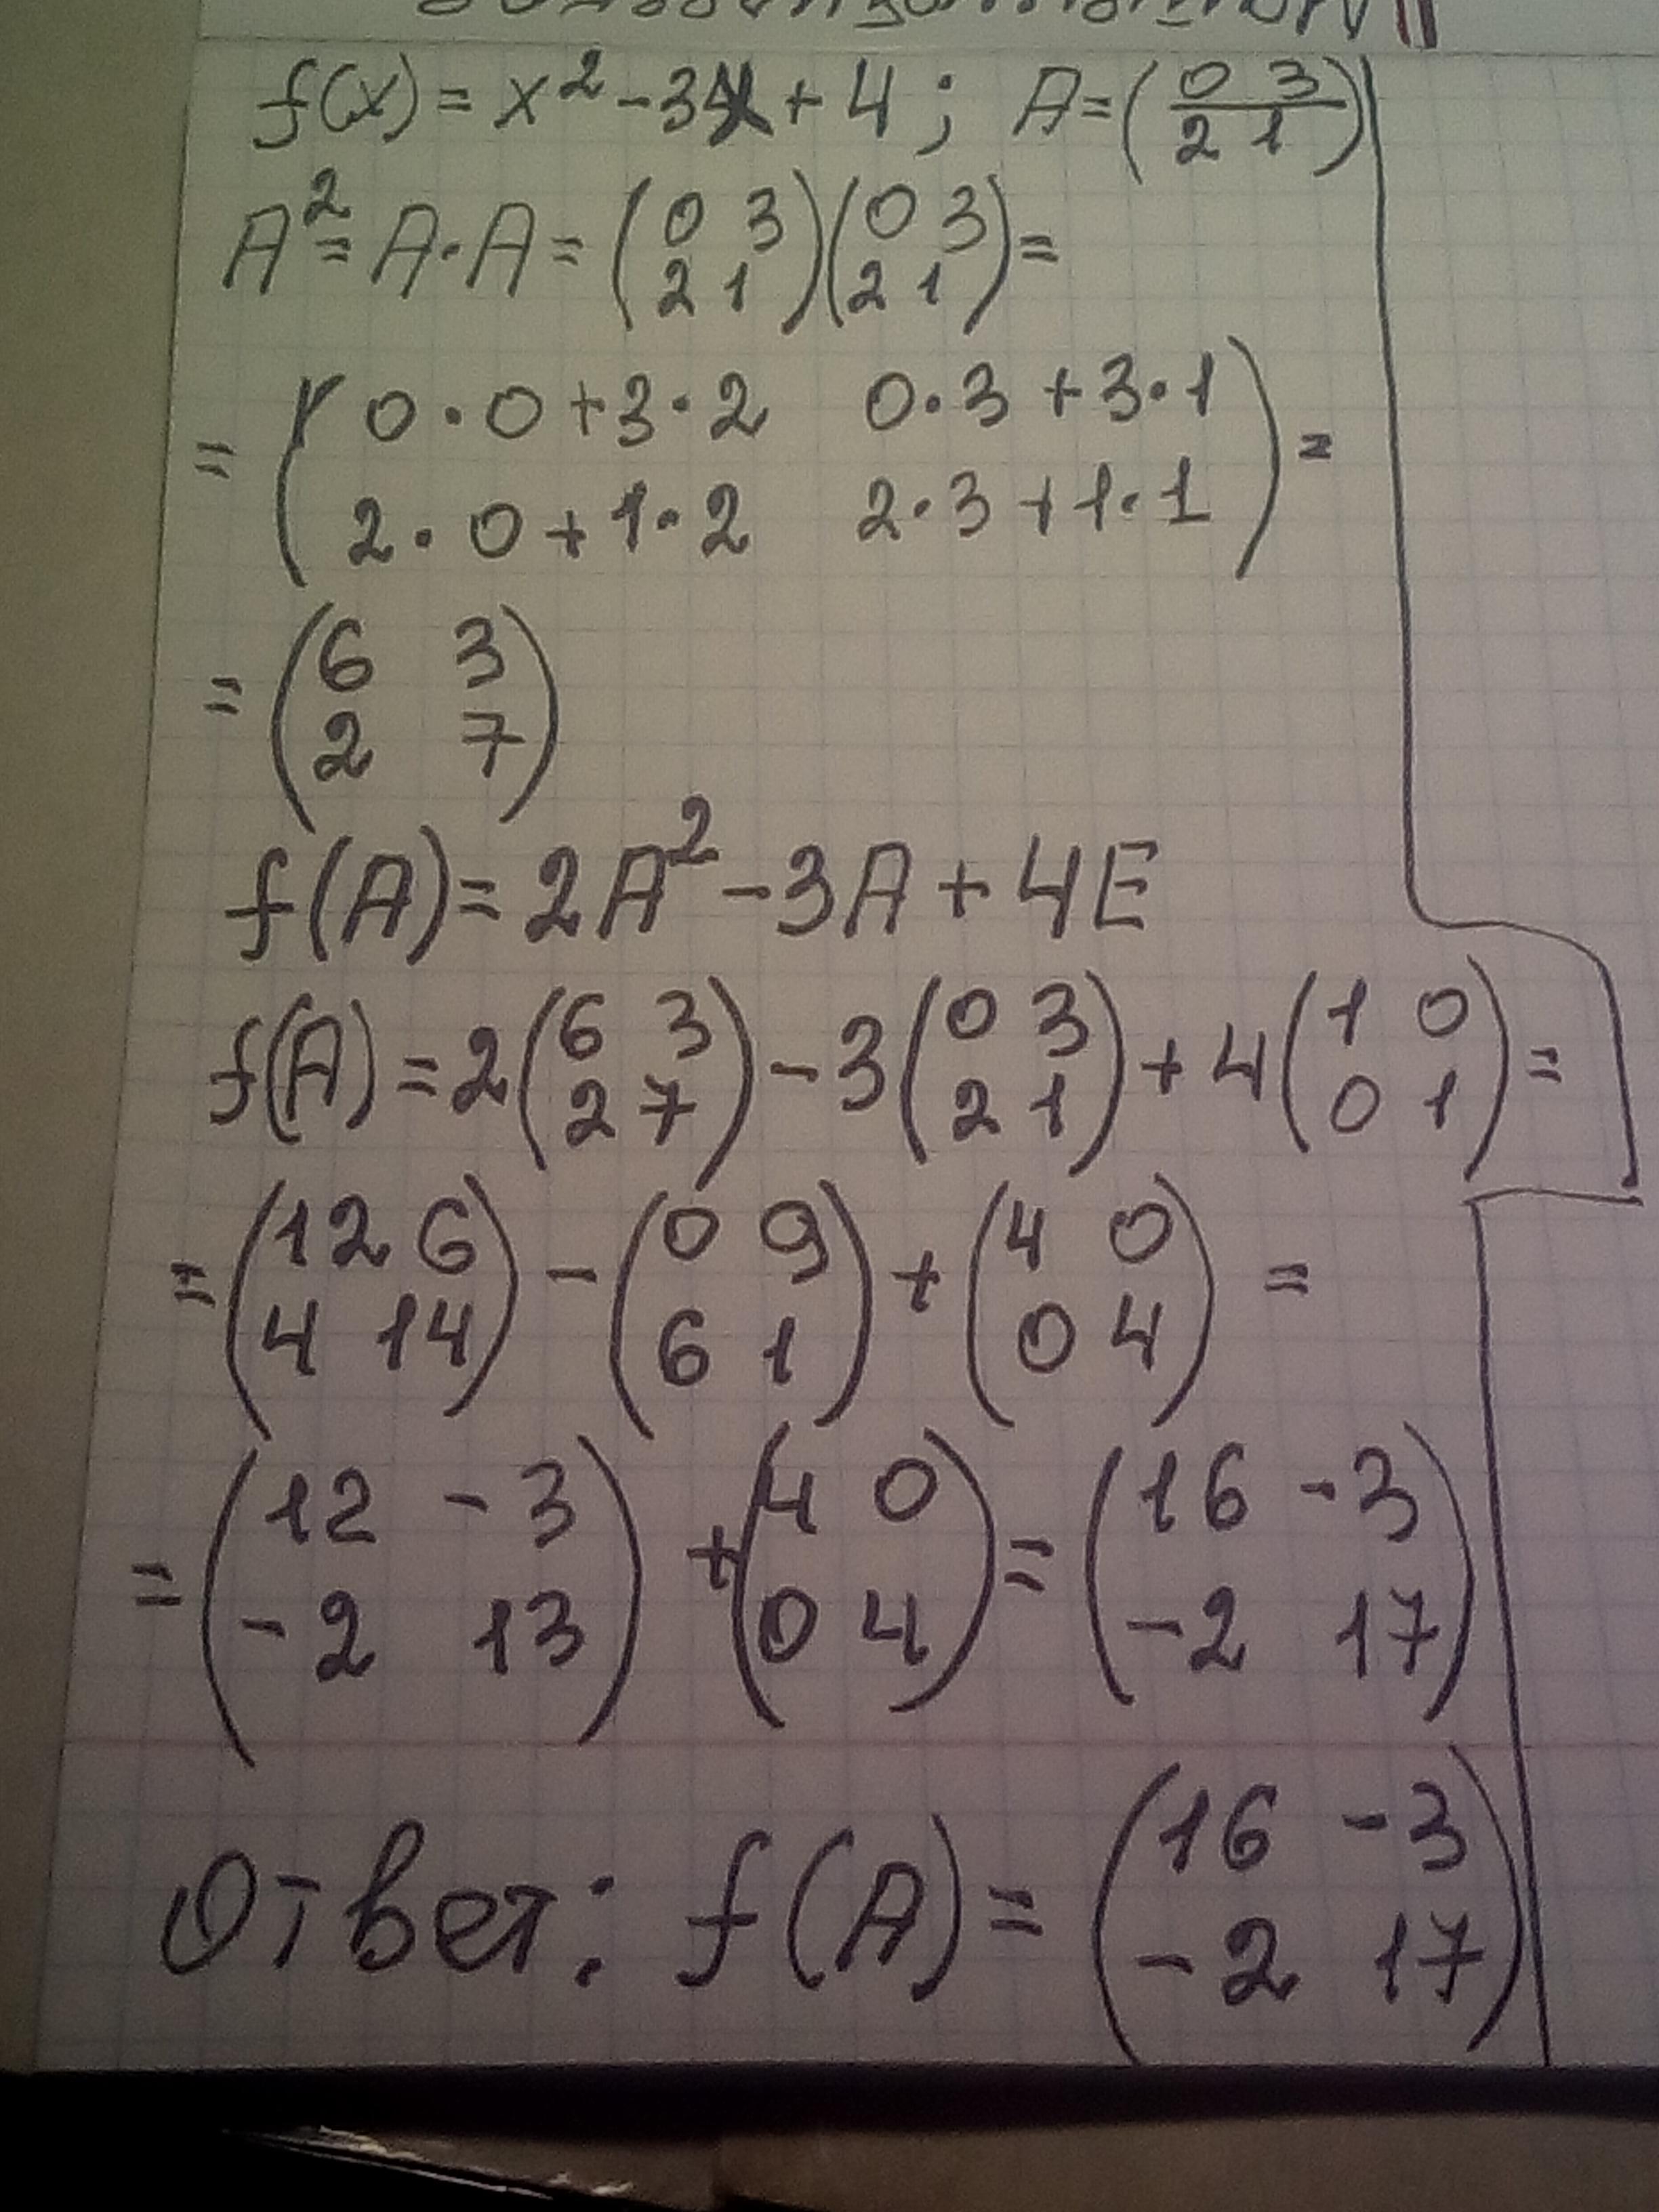 f(x) = x² - 3x + 4 ; A = (0 3 / 2 1)
A² = A · A = (0 3 / 2 1)(0 3 / 2 1) =
= (0 · 0 + 3 · 2 0 · 3 + 3 · 1 / 2 · 0 + 1 · 2 2 · 3 + 1 · 1) =
= (6 3 / 2 7)
f(A) = 2A² - 3A + 4E
f(A) = 2(6 3 / 2 7) - 3(0 3 / 2 1) + 4(1 0 / 0 1) =
= (12 6 / 4 14) - (0 9 / 6 1) + (4 0 / 0 4) =
= (12 -3 / -2 13) + (4 0 / 0 4) = (16 -3 / -2 17)
Ответ: f(A) = (16 -3 / -2 17)